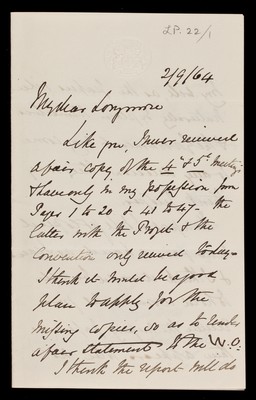 L.P. 22/1
2/9/64
My dear Longmore
Like you, I never received
a fair copy of the 4th & 5th Meetings
& have only in my possession from
Pages 1 to 20 & 41 to 47 - the
latter with the Projet & the
Convention only received today -
I think it would be a good
plan to apply for the
missing copies, so as to render
a fair statement to the W.O.
I think the report will do